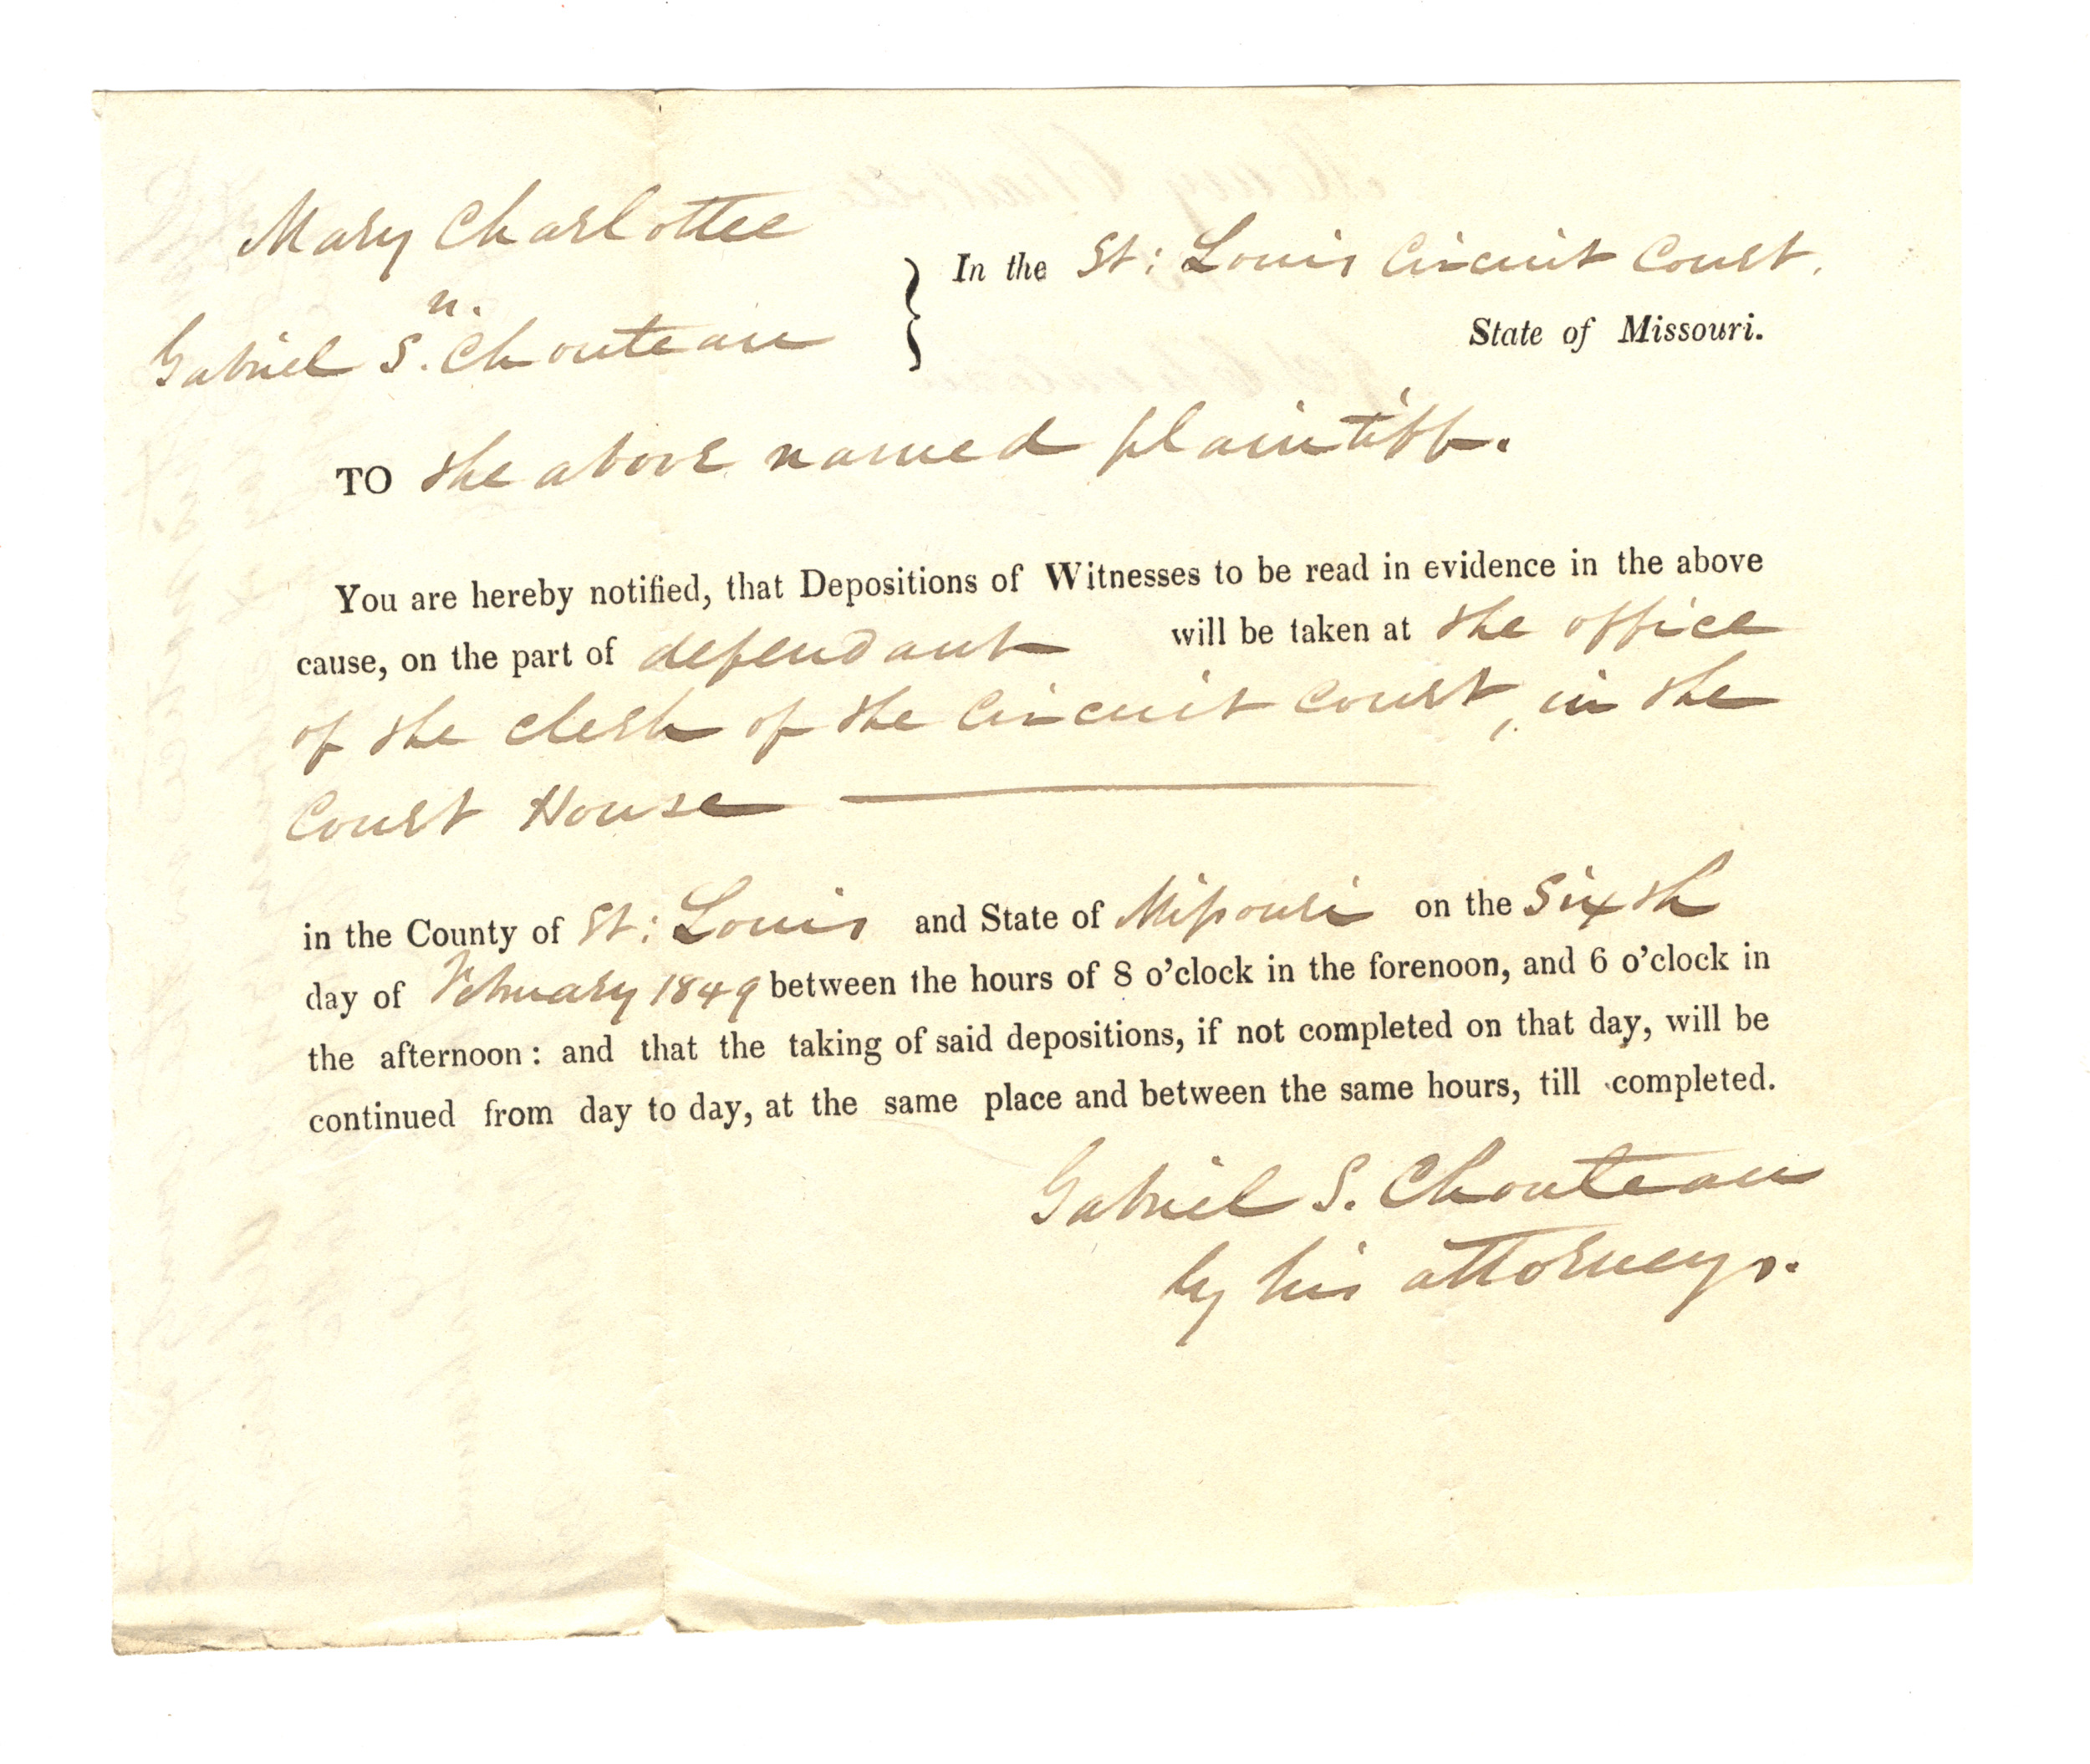 Mary Charlotte
v.
Gabriel S. Chouteau
In the St: Louis Circuit Court.
State of Missouri.
TO the above named plaintiff.
You are hereby notified, that Depositions of Witnesses to be read in evidence in the above
cause, on the part of defendant will be taken at the office
of the clerk of the Circuit Court, in the
Court House
in the County of St: Louis and State of Missouri on the Sixth
day of February 1849 between the hours of 8 o'clock in the forenoon, and 6 o'clock in
the afternoon: and that the taking of said depositions, if not completed on that day, will be
continued from day to day, at the same place and between the same hours, till completed.
Gabriel S. Chouteau
by his attorneys.